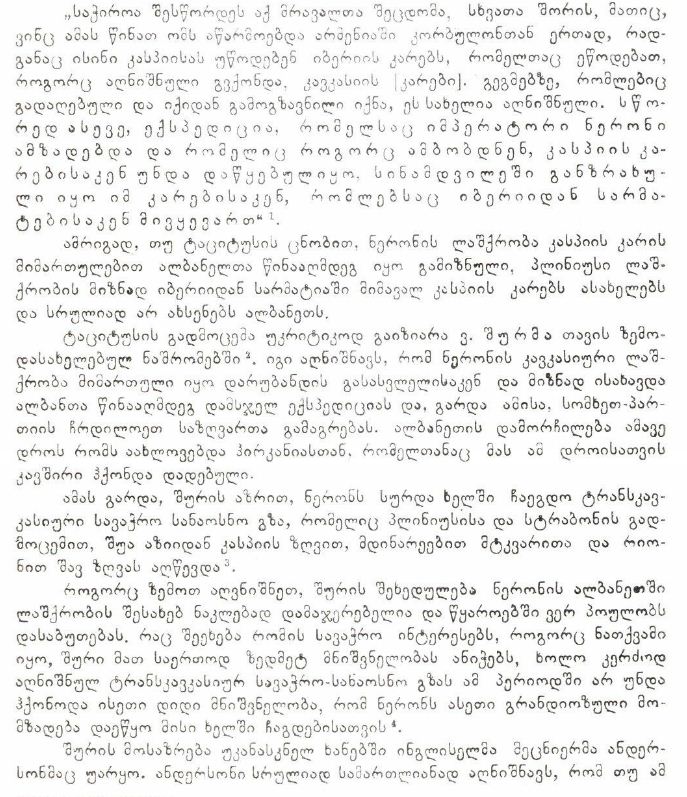 „საჭიროა შესწორდეს აქ მრავალთა შეცდომა, სხვათა შორის, მათიც,
ვინც ამას წინათ ომს აწარმოებდა არმენიაში კორბულონთან ერთად, რად-
განაც ისინი კასპიისას უწოდებენ იბერიის კარებს, რომელთაც ეწოდებათ,
როგორც აღნიშნული გვქონდა, კავკასიის [კარები]. გეგმებზე, რომლებიც
გადაღებული და იქიდან გამოგზავნილი იქნა, ეს სახელია აღნიშნული. სწო-
რედ ასევე, ექსპედიცია, რომელსაც იმპერატორი ნერონი
ამზადებდა და რომელიც როგორც ამბობდნენ, კასპიის კა-
რებისაკენ უნდა დაწყებულიყო, სინამდვილეში განზრახუ-
ლი იყო იმ კარებისაკენ, რომლებსაც იბერიიდან სარმა-
ტებისაკენ მივყევართ“ 1.
ამრიგად, თუ ტაციტუსის ცნობით, ნერონის ლაშქრობა კასპიის კარის
მიმართულებით ალბანელთა წინააღმდეგ იყო გამიზნული, პლინიუსი ლაშ-
ქრობის მიზნად იბერიიდან სარმატიაში მიმავალ კასპიის კარებს ასახელებს
და სრულიად არ ახსენებს ალბანეთს.
ტაციტუსის გადმოცემა უკრიტიკოდ გაიზიარა ვ. შურმა თავის ზემო-
დასახელებულ ნაშრომებში 2. იგი აღნიშნავს, რომ ნერონის კავკასიური ლაშ-
ქრობა მიმართული იყო დარუბანდის გასასვლელისაკენ და მიზნად ისახავდა
ალბანთა წინააღმდეგ დამსჯელ ექსპედიციას და, გარდა ამისა, სომხეთ-პარ-
თიის ჩრდილოეთ საზღვართა გამაგრებას. ალბანეთის დამორჩილება ამავე
დროს რომს აახლოვებდა ჰირკანიასთან, რომელთანაც მას ამ დროისათვის
კავშირი ჰქონდა დადებული.
ამას გარდა, შურის აზრით, ნერონს სურდა ხელში ჩაეგდო ტრანსკავ-
კასიური სავაჭრო სანაოსნო გზა, რომელიც პლინიუსისა და სტრაბონის გად-
მოცემით, შუა აზიიდან კასპიის ზღვით, მდინარეებით მტკვარითა და რიო-
ნით შავ ზღვას აღწევდა 3.
როგორც ზემოთ აღვნიშნეთ, შურის შეხედულება ნერონის ალბანეთში
ლაშქრობის შესახებ ნაკლებად დამაჯერებელია და წყაროებში ვერ პოულობს
დასაბუთებას. რაც შეეხება რომის სავაჭრო ინტერესებს, როგორც ნათქვამი
იყო, შური მათ საერთოდ ზედმეტ მნიშვნელობას ანიჭებს, ხოლო კერძოდ
აღნიშნულ ტრანსკავკასიურ სავაჭრო-სანაოსნო გზას ამ პერიოდში არ უნდა
ჰქონოდა ისეთი დიდი მნიშვნელობა, რომ ნერონს ასეთი გრანდიოზული მო-
მზადება დაეწყო მისი ხელში ჩაგდებისათვის 4.
შურის მოსაზრება უკანასკნელ ხანებში ინგლისელმა მეცნიერმა ანდერ-
სონმაც უარყო. ანდერსონი სრულიად სამართლიანად აღნიშნავს, რომ თუ ამ